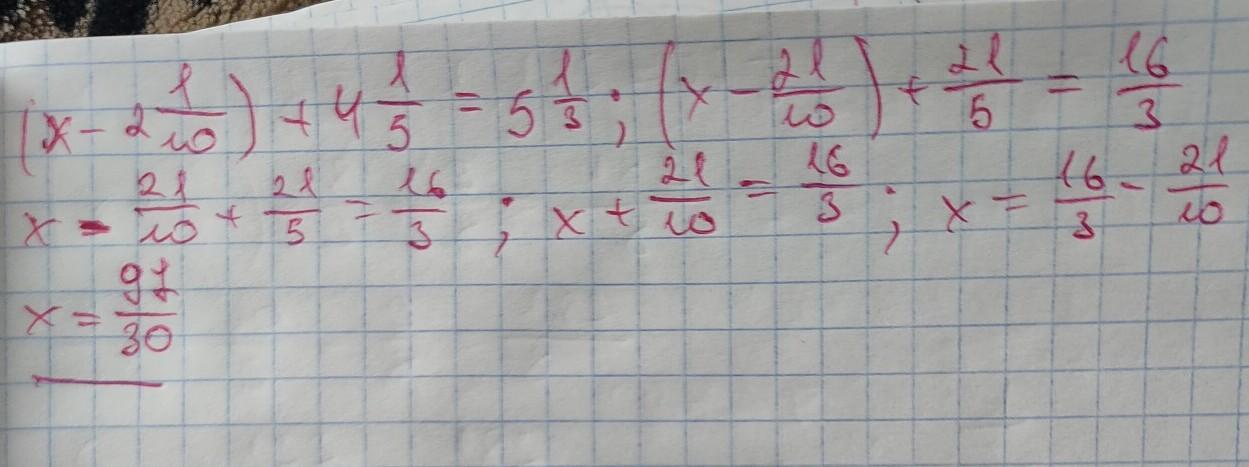 (x - 2 1/10) + 4 1/5 = 5 1/3 ; (x - 21/10) + 21/5 = 16/3
x - 21/10 + 21/5 = 16/3 ; x + 21/10 = 16/3 ; x = 16/3 - 21/10
x = 97/30